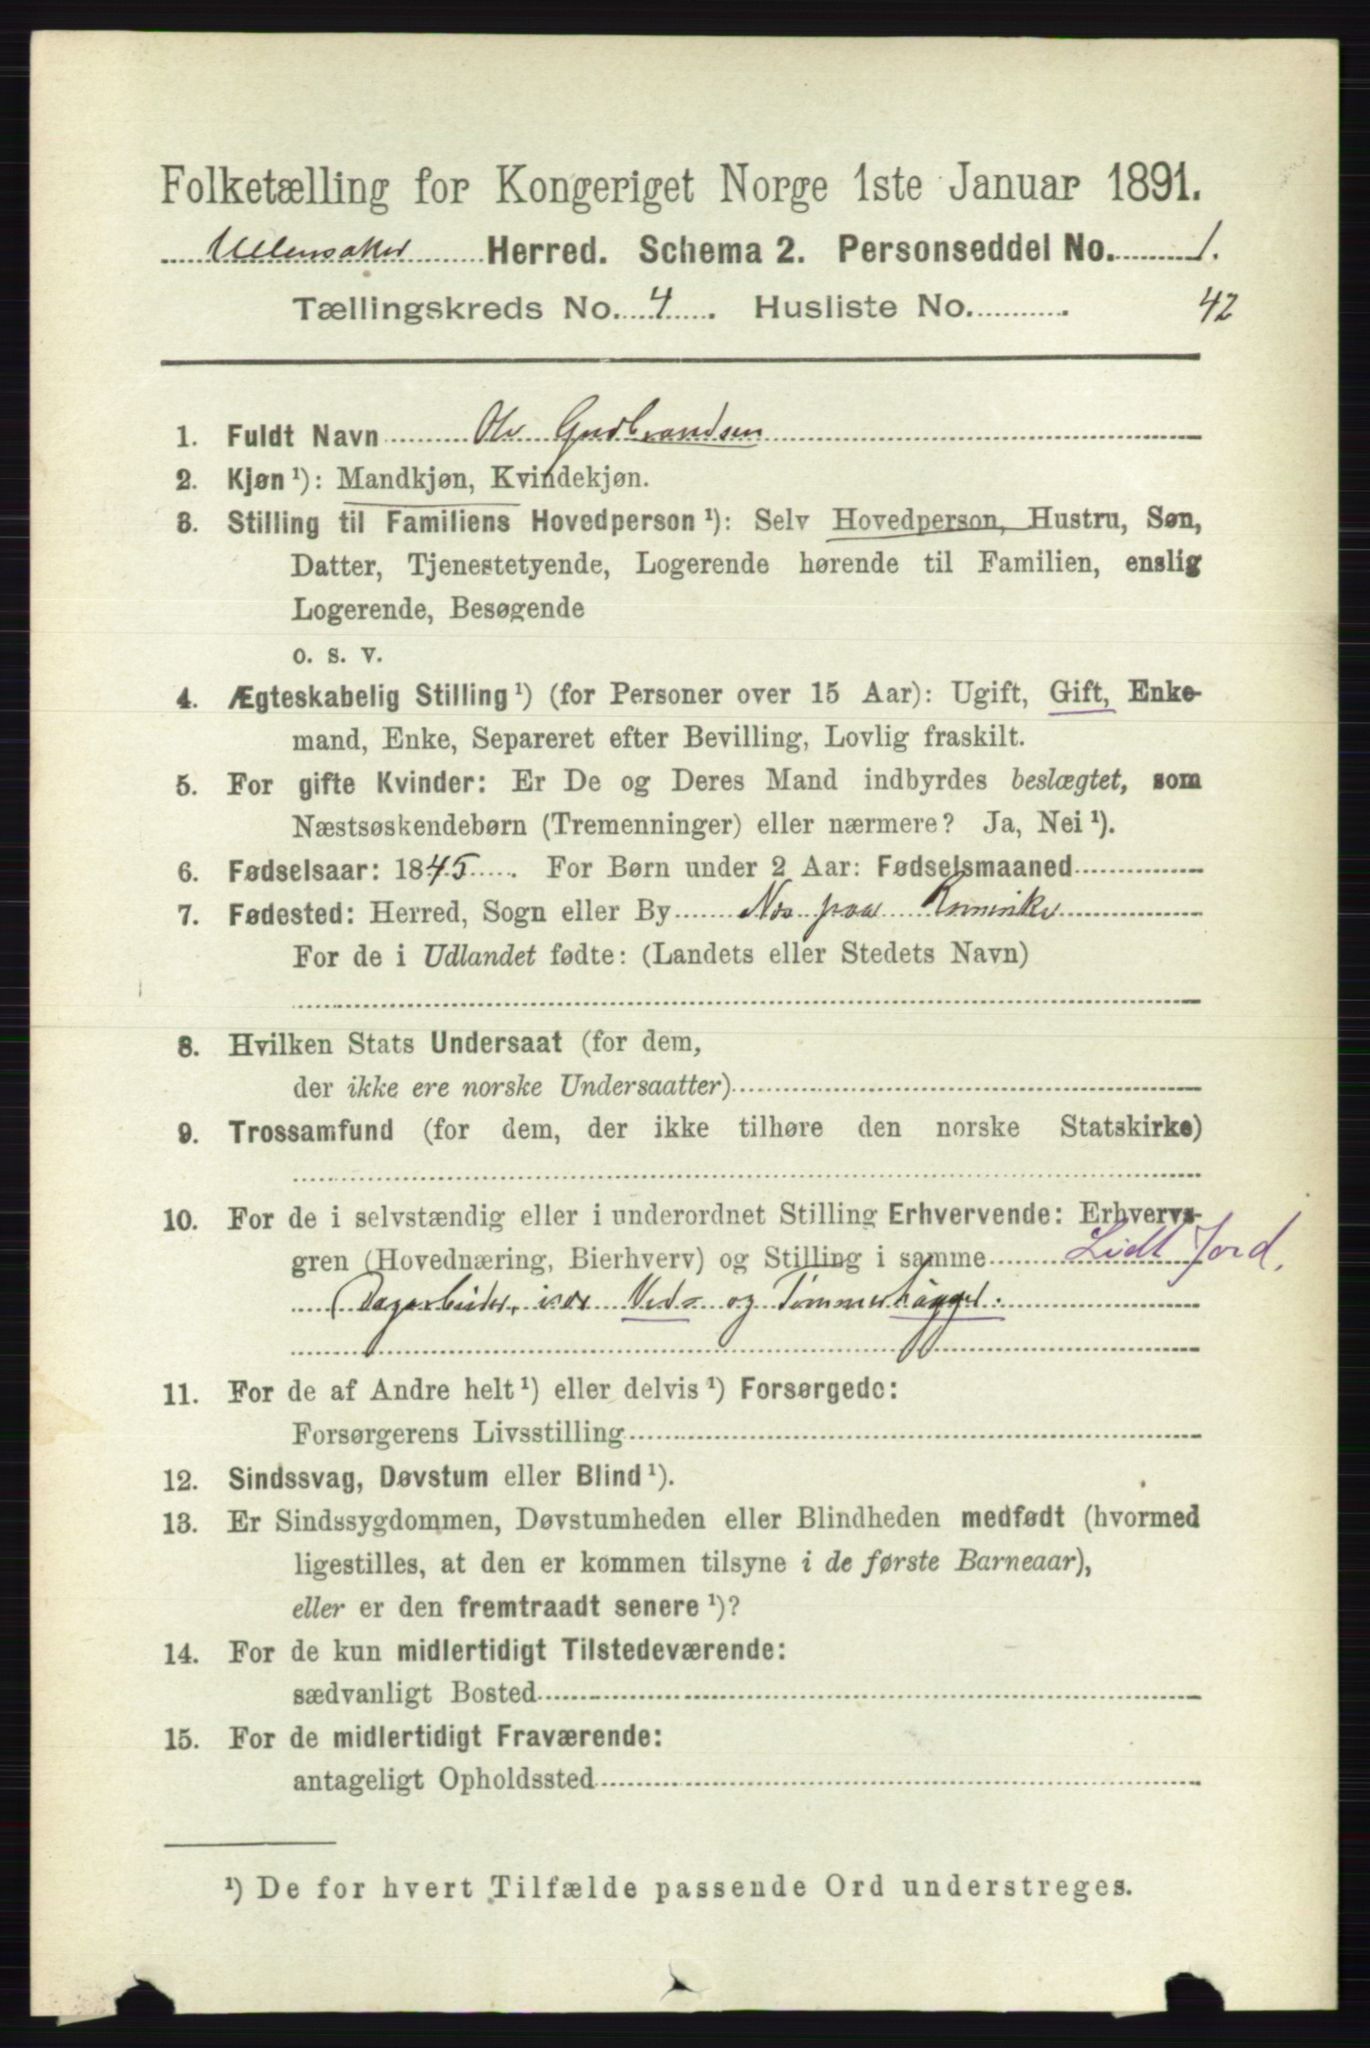 Folketælling for Kongeriget Norge 1ste Januar 1891.
Ullensaker Herred. Schema 2. Personseddel No. 1.
Tællingskreds No. 4. Husliste No. 42
1. Fuldt Navn Ole Gudbrandsen
2. Kjøn ¹): Mandkjøn, Kvindekjøn.
3. Stilling til Familiens Hovedperson ¹): Selv Hovedperson, Hustru, Søn,
Datter, Tjenestetyende, Logerende hørende til Familien, enslig
Logerende, Besøgende
o. s. v.
4. Ægteskabelig Stilling ¹) (for Personer over 15 Aar): Ugift, Gift, Enke-
mand, Enke, Separeret efter Bevilling, Lovlig fraskilt.
5. For gifte Kvinder: Er De og Deres Mand indbyrdes beslægtet, som
Næstsøskendebørn (Tremenninger) eller nærmere? Ja, Nei ¹).
6. Fødselsaar: 1845. For Børn under 2 Aar: Fødselsmaaned
7. Fødested: Herred, Sogn eller By Næs paa Romerike
For de i Udlandet fødte: (Landets eller Stedets Navn)
8. Hvilken Stats Undersaat (for dem,
der ikke ere norske Undersaatter)
9. Trossamfund (for dem, der ikke tilhøre den norske Statskirke)
10. For de i selvstændig eller i underordnet Stilling Erhvervende: Erhvervs-
gren (Hovednæring, Bierhverv) og Stilling i samme Lidt Jord,
Dagarbeider, især Ved- og Tømmerhugget.
11. For de af Andre helt ¹) eller delvis ¹) Forsørgede:
Forsørgerens Livsstilling
12. Sindssvag, Døvstum eller Blind ¹).
13. Er Sindssygdommen, Døvstumheden eller Blindheden medfødt (hvormed
ligestilles, at den er kommen tilsyne i de første Barneaar),
eller er den fremtraadt senere ¹)?
14. For de kun midlertidigt Tilstedeværende:
sædvanligt Bosted
15. For de midlertidigt Fraværende:
antageligt Opholdssted
¹) De for hvert Tilfælde passende Ord understreges.